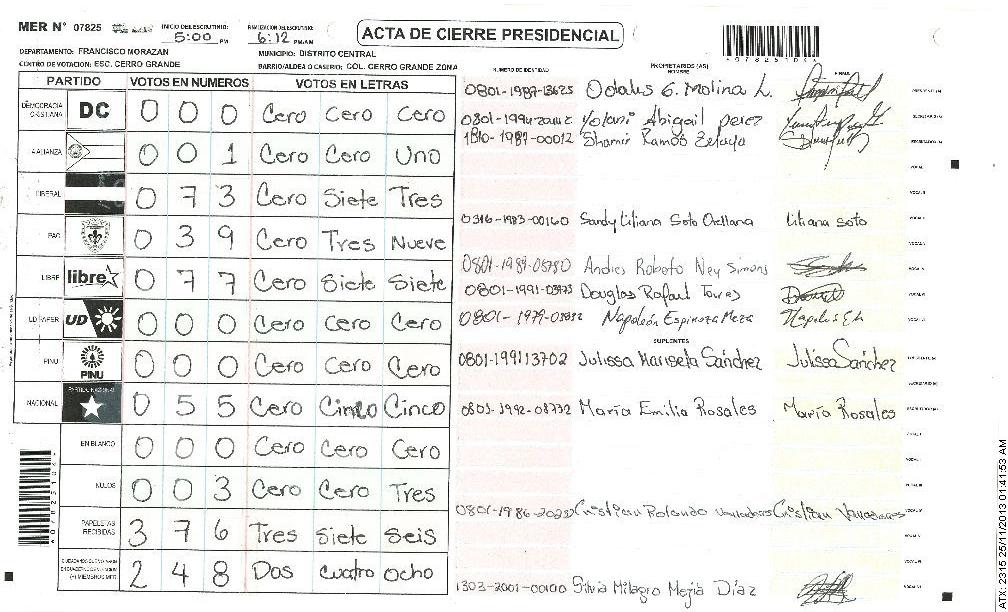 MER N° 07825 INICIO DEL ESCRUTINIO: 5:00 PM FINALIZACION DEL ESCRUTINIO: 6:12 PM/AM ACTA DE CIERRE PRESIDENCIAL
DEPARTAMENTO: FRANCISCO MORAZAN MUNICIPIO: DISTRITO CENTRAL
CENTRO DE VOTACION: ESC. CERRO GRANDE BARRIO/ALDEA O CASERIO: COL. CERRO GRANDE ZONA
PARTIDO VOTOS EN NUMEROS VOTOS EN LETRAS
DEMOCRACIA CRISTIANA DC 0 0 0 Cero Cero Cero
ALIANZA 0 0 1 Cero Cero Uno
LIBERAL 0 7 3 Cero Siete Tres
PAC 0 3 9 Cero Tres Nueve
LIBRE libre 0 7 7 Cero Siete Siete
UD 0 0 0 Cero Cero Cero
PINU PINU 0 0 0 Cero Cero Cero
NACIONAL PARTIDO NACIONAL 0 5 5 Cero Cinco Cinco
EN BLANCO 0 0 0 Cero Cero Cero
NULOS 0 0 3 Cero Cero Tres
PAPELETAS RECIBIDAS 3 7 6 Tres Siete Seis
(+) MIEMBROS MER 2 4 8 Dos Cuatro Ocho
NUMERO DE IDENTIDAD PROPIETARIOS (AS) NOMBRE FIRMA
0801-1987-13625 Odalis G. Molina L.
Yolani Abigail perez
Shamir Ramos Zelaya
0316-1983-00160 Sandy Liliana Soto Orellana Liliana Soto
Andres Roberto Ney Simons
Douglas Rafael Torres
Napoleón Espinoza Meza
SUPLENTES
0801-199113702 Julissa Marisela Sánchez Julissa Sánchez
0801-1992-08732 María Emilia Rosales María Rosales
Cristian Rolando
1303-2001-00100 Silvia Milagro Mejia Díaz
ATX: 2315 25/11/2013 01:41:53 AM